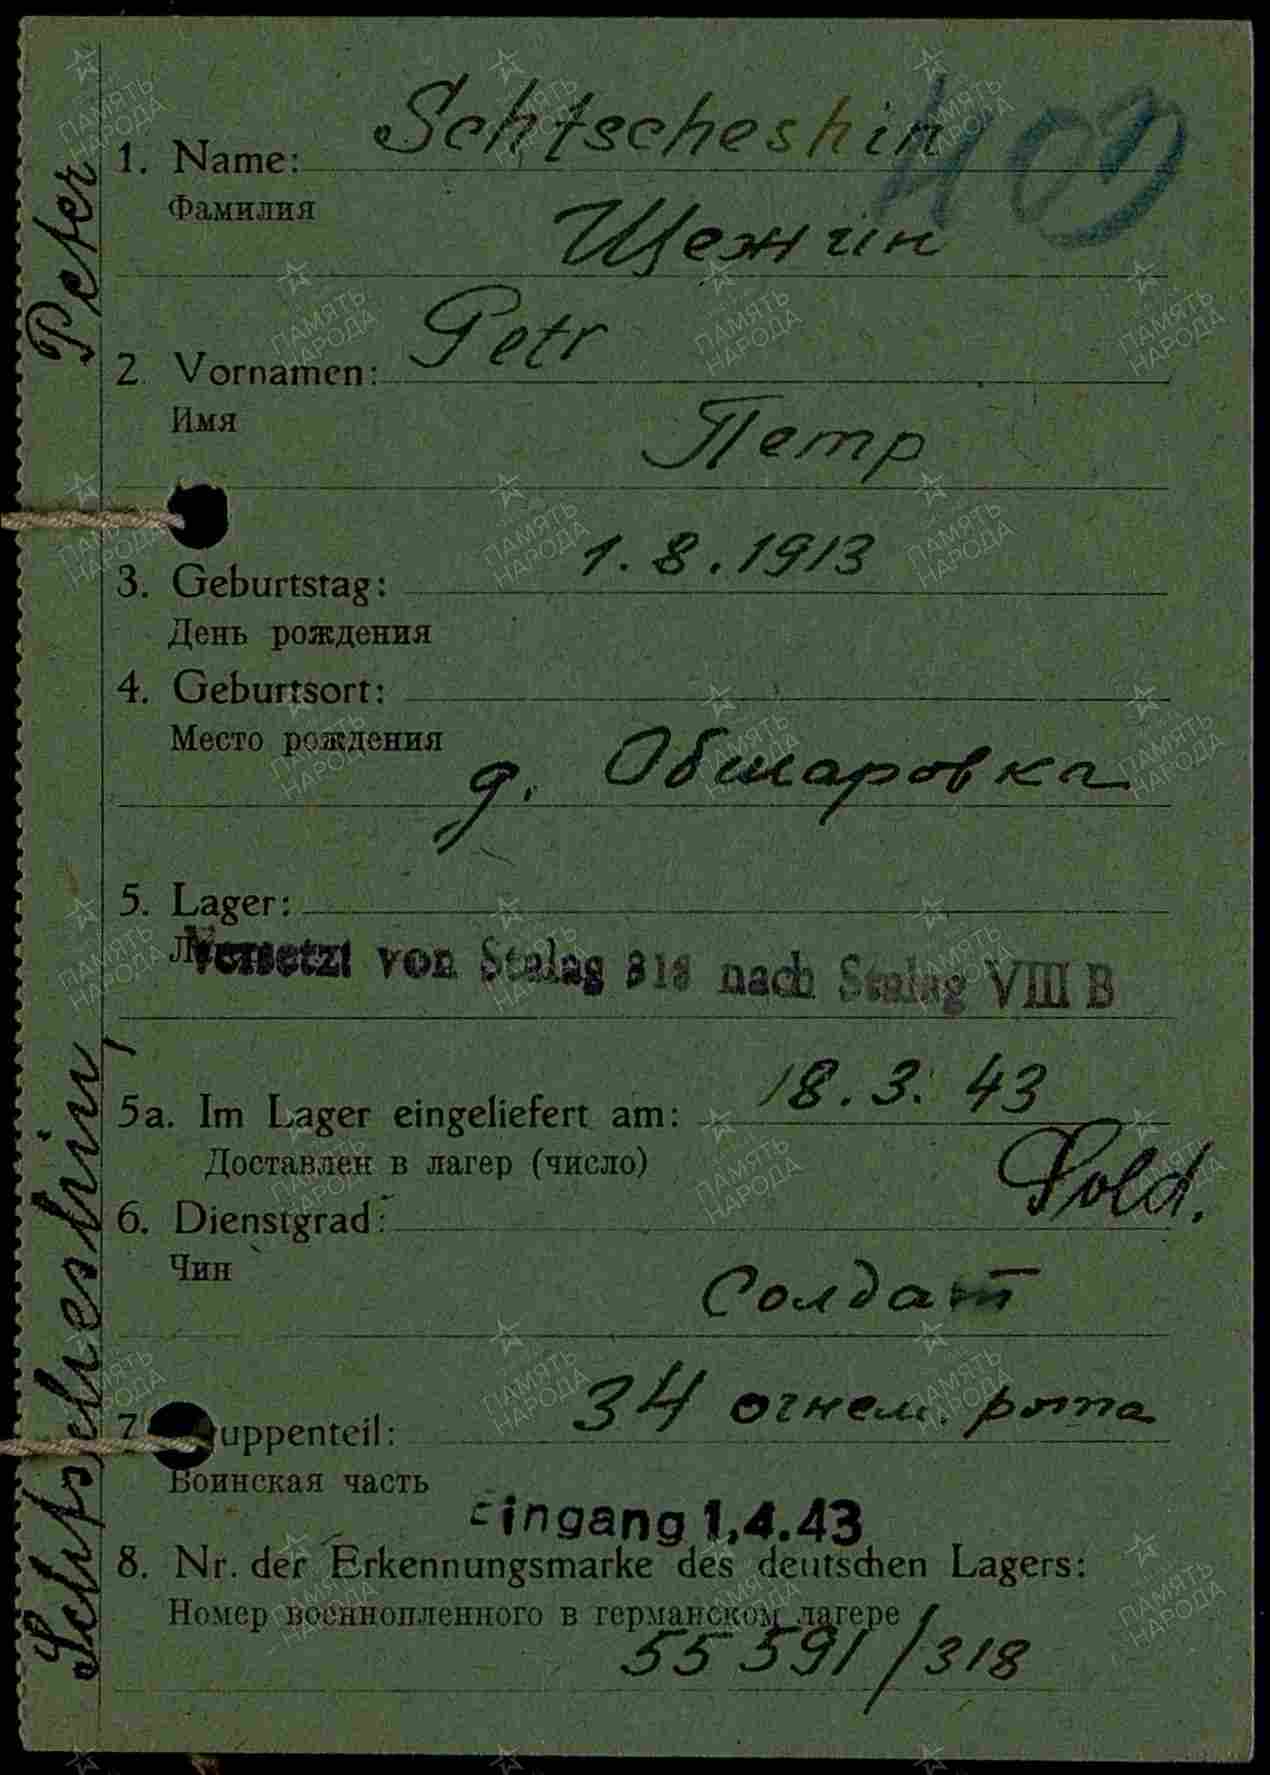 Schtscheshin
1. Name:
Фамилия
Щежнин
Petr
2. Vornamen:
Имя
Петр
1.8.1913
3. Geburtstag:
День рождения
4. Geburtsort:
Место рождения
д. Обшаровка
5. Lager:
Versetzt von Stalag 318 nach Stalag VIII B
5a. Im Lager eingeliefert am: 18.3.43
Доставлен в лагер (число)
6. Dienstgrad: Sold.
Чин
Солдат
7. uppenteil: 34 огнем. рота
Воинская часть
Eingang 1.4.43
8. Nr. der Erkennungsmarke des deutschen Lagers:
Номер военнопленного в германском лагере
55591/318
Schtscheshin, Peter
ПАМЯТЬ НАРОДА